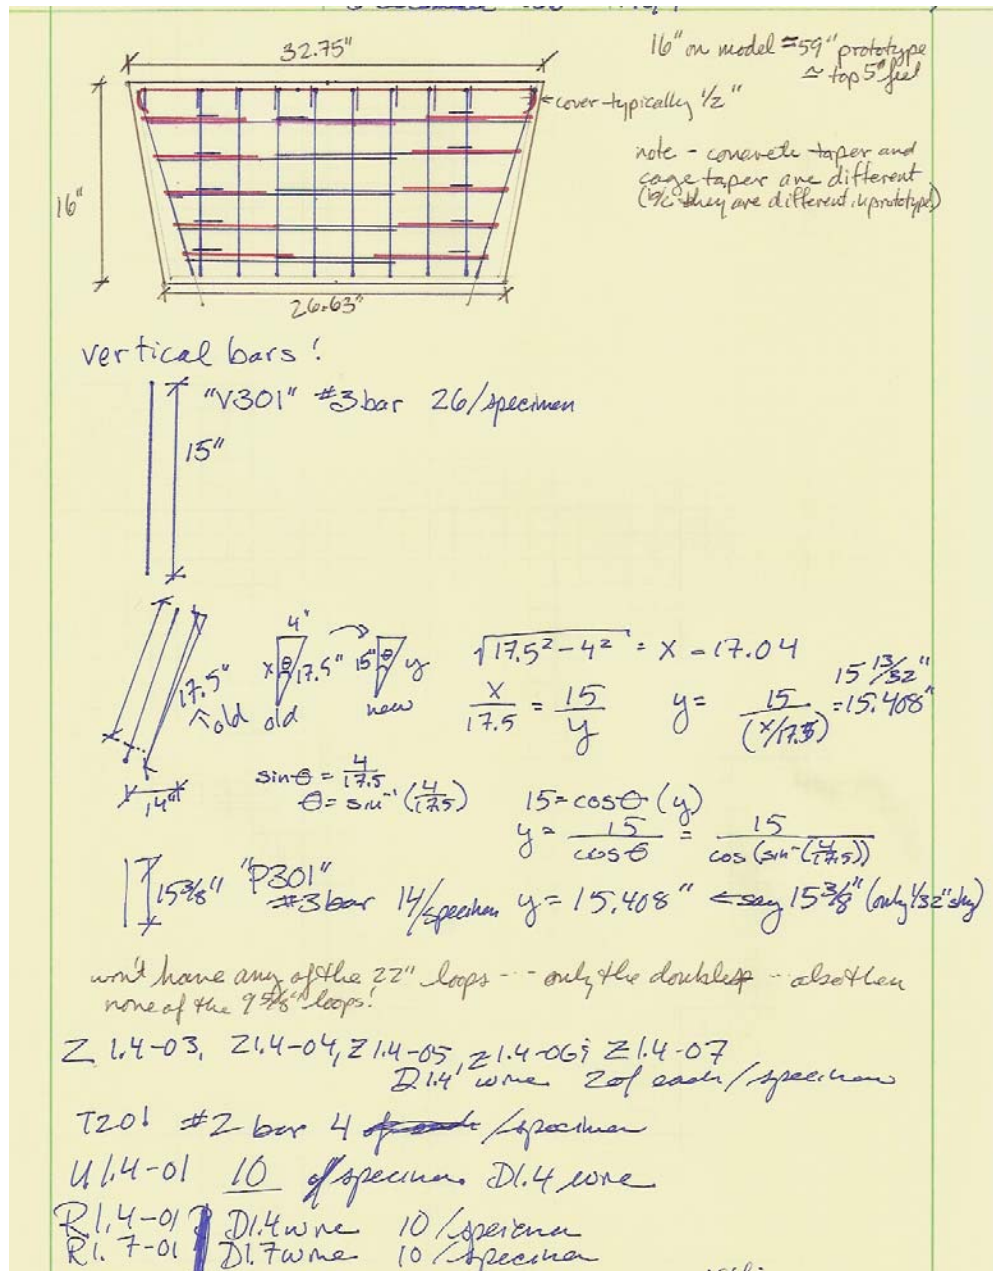 32.75"
16" on model = 59" prototype
≈ top 5 feet
cover - typically 1/2"
note - concrete taper and
cage taper are different
(b/c they are different in prototype)
16"
26.63"
vertical bars!
"V301" #3 bar 26/specimen
15"
4"
x θ 17.5" 15" θ y
old new
17.5"
↖ old
√17.5² - 4² = x = 17.04
x/17.5 = 15/y y = 15/(x/17.5) = 15.408"
15 13/32"
14"
sin θ = 4/17.5
θ = sin⁻¹ (4/17.5)
15 = cos θ (y)
y = 15/cos θ = 15/cos (sin⁻¹(4/17.5))
15 3/8" "P301"
#3 bar 14/specimen y = 15.408" ← say 15 3/8" (only 1/32" shy)
won't have any of the 22" loops -- only the doubles -- also then
none of the 9 5/8" loops!
Z 1.4-03, Z1.4-04, Z1.4-05, Z1.4-06; Z1.4-07
D1.4 wire 2 of each/specimen
T201 #2 bar 4 /specimen
U1.4-01 10 /specimen D1.4 wire
R1.4-01 D1.4 wire 10/specimen
R1.7-01 D1.7 wire 10/specimen